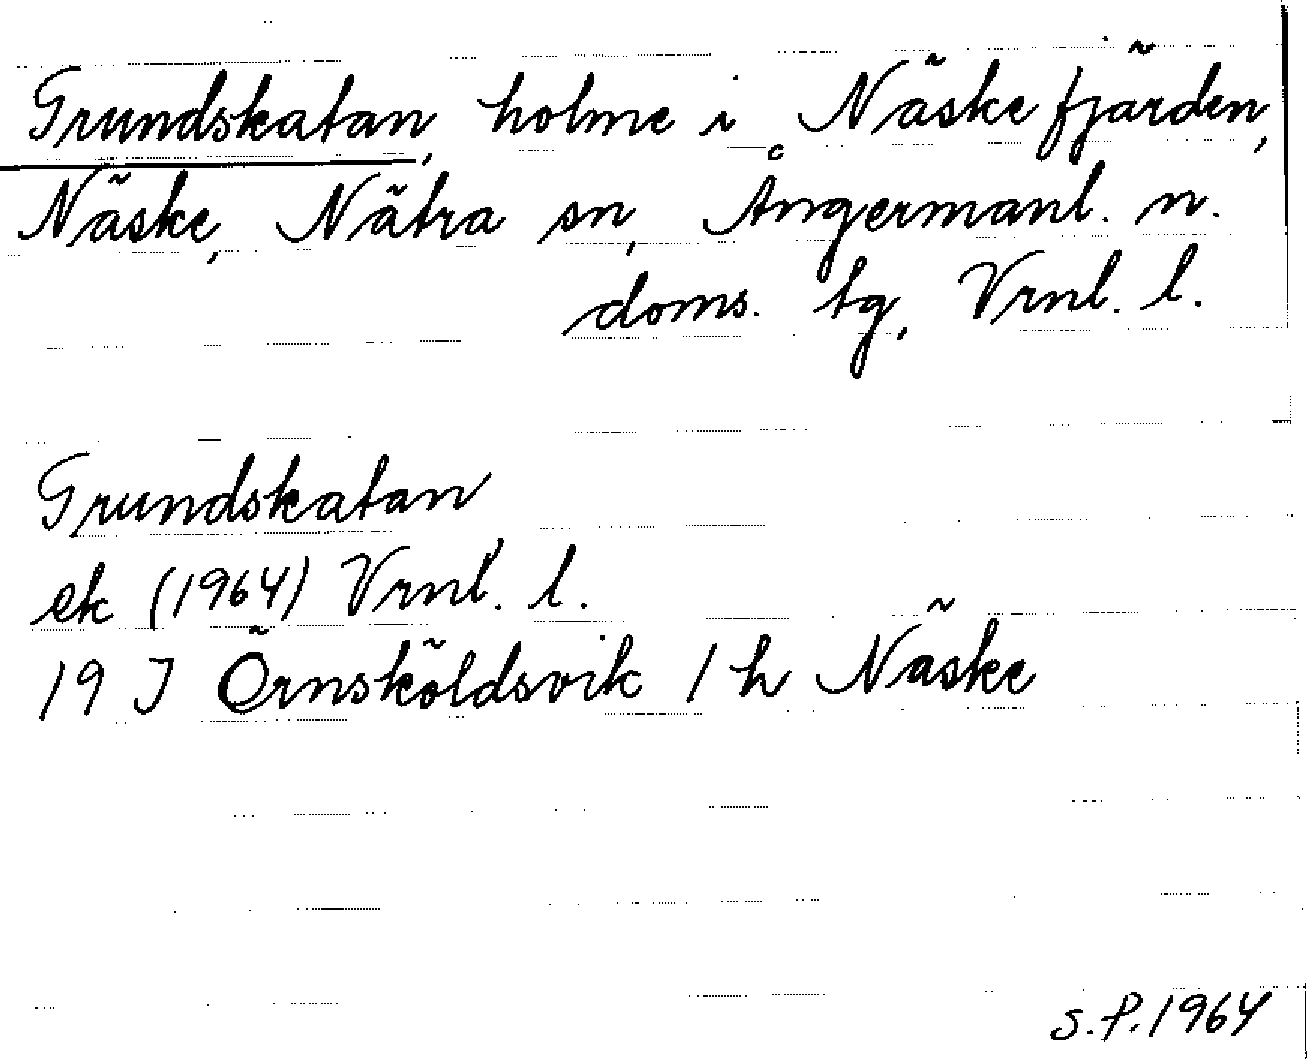 Grundskatan, holme i Näskefjärden,
Näske, Nätra sn, Ångermanl. n.
doms. tg, Vrnl. l.
Grundskatan,
ek (1964) Vrnl. l.
19 J Örnsköldsvik 1 h Näske
S.P. 1964